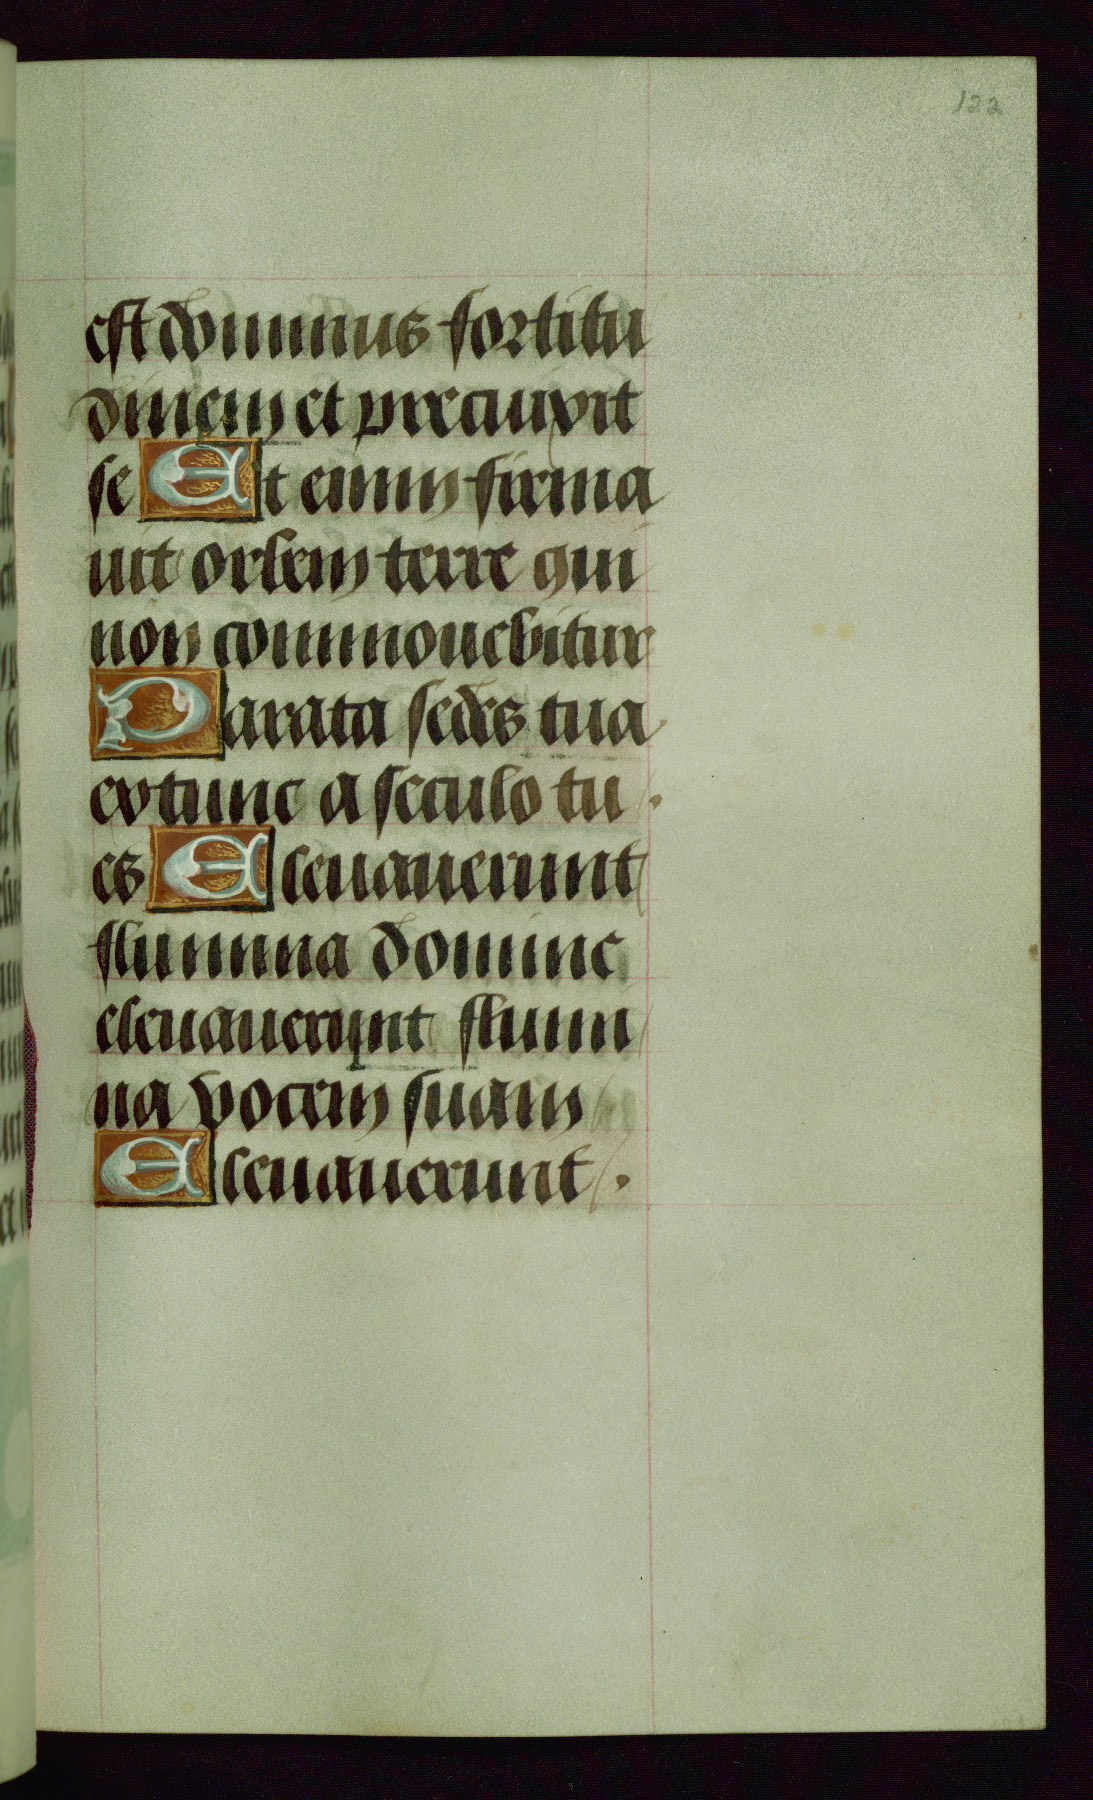 122
est dominus fortitu
dinem et precinxit
se Et enim firma
uit orbem terre qui
non commouebitur
Parata sedes tua
extunc a seculo tu
es Eleuauerunt
flumina domine
eleuauerunt flumi
na vocem suam
Eleuauerunt.